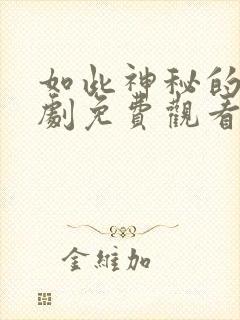 如此神秘的
劇免費觀看
金維加